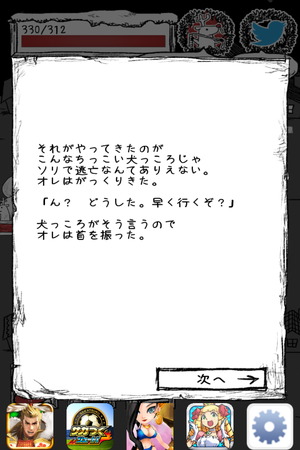 330/312
それがやってきたのが
こんなちっこい犬っころじゃ
ソリで逃亡なんてありえない。
オレはがっくりきた。
「ん？　どうした。早く行くぞ？」
犬っころがそう言うので
オレは首を振った。
次へ →
サカつく